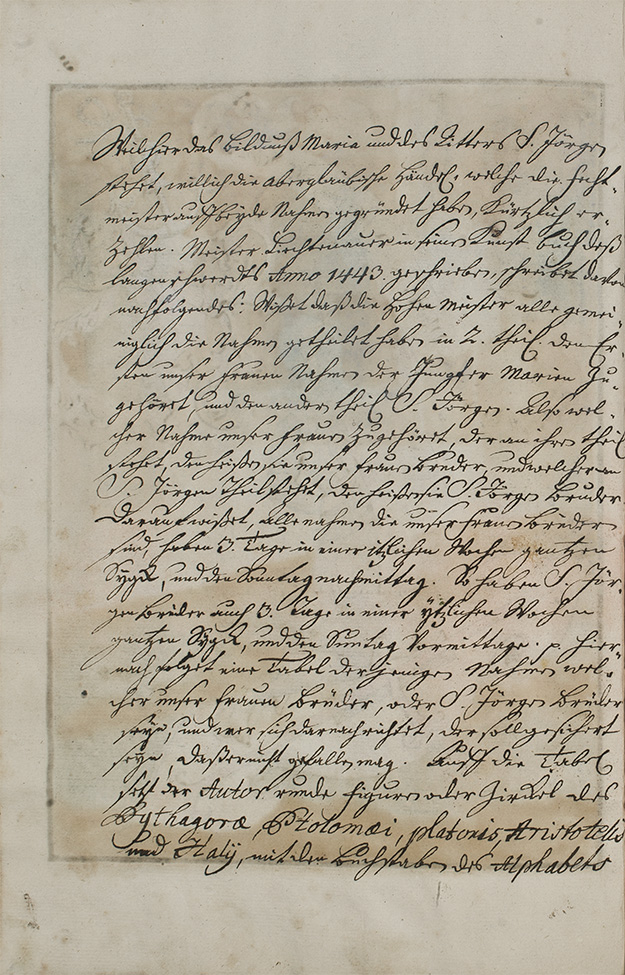 Weil hier das Bildnuß Maria und des Ritters S. Jörgen
stehet, will ich die Abergläubische Händel, welche die Fecht-
meister auff beyde Nahmen gegründet haben, Kürtzlich er-
zehlen. Meister Liechtenauer in seinem Kunst buch deß
langenschwerdts Anno 1443. geschrieben, schreibet davon
nachfolgendes: Wißet daß die Hohen Meister alle gemei-
niglich die Nahmen getheilet haben in 2. theil. den Er-
sten unser Frauen Nahmen der Jungfer Marien Zu-
gehöret, und den andern theil S. Jörgen. Also wel-
cher Nahme unser Frauen Zugehöret, der an ihren theil
stehet, den heißen sie unser Frauen Bruder, und welcher an
S. Jörgen Theil stehet, den heißen sie S. Jörgen Bruder.
Darauf wißet, alle nahmen die unser Frauen Brüder
sind, haben 3. Tage in einer itzlichen Wochen gantzen
Sygk, und den Sonntag nachmittag. So haben S. Jör-
gen Brüder auch 3. Tage in einer ytzlichen Wochen
gantzen Sygk, und den Suntag Vormittage. p. Hier-
nach folget eine Tabel derjenigen Nahmen wel-
cher unser Frauen Brüder, oder S. Jörgen Brüder
seyn, und wer sich darnach richtet, der soll gesichert
seyn, daß er nicht gefallen mag. Auff die Tabel
setzt der Autor runde Figuren oder Zirckel des
Pythagoræ, Ptolomæi, platonis, Aristotelis
und Halÿ, mit den Buchstaben des Alphabets